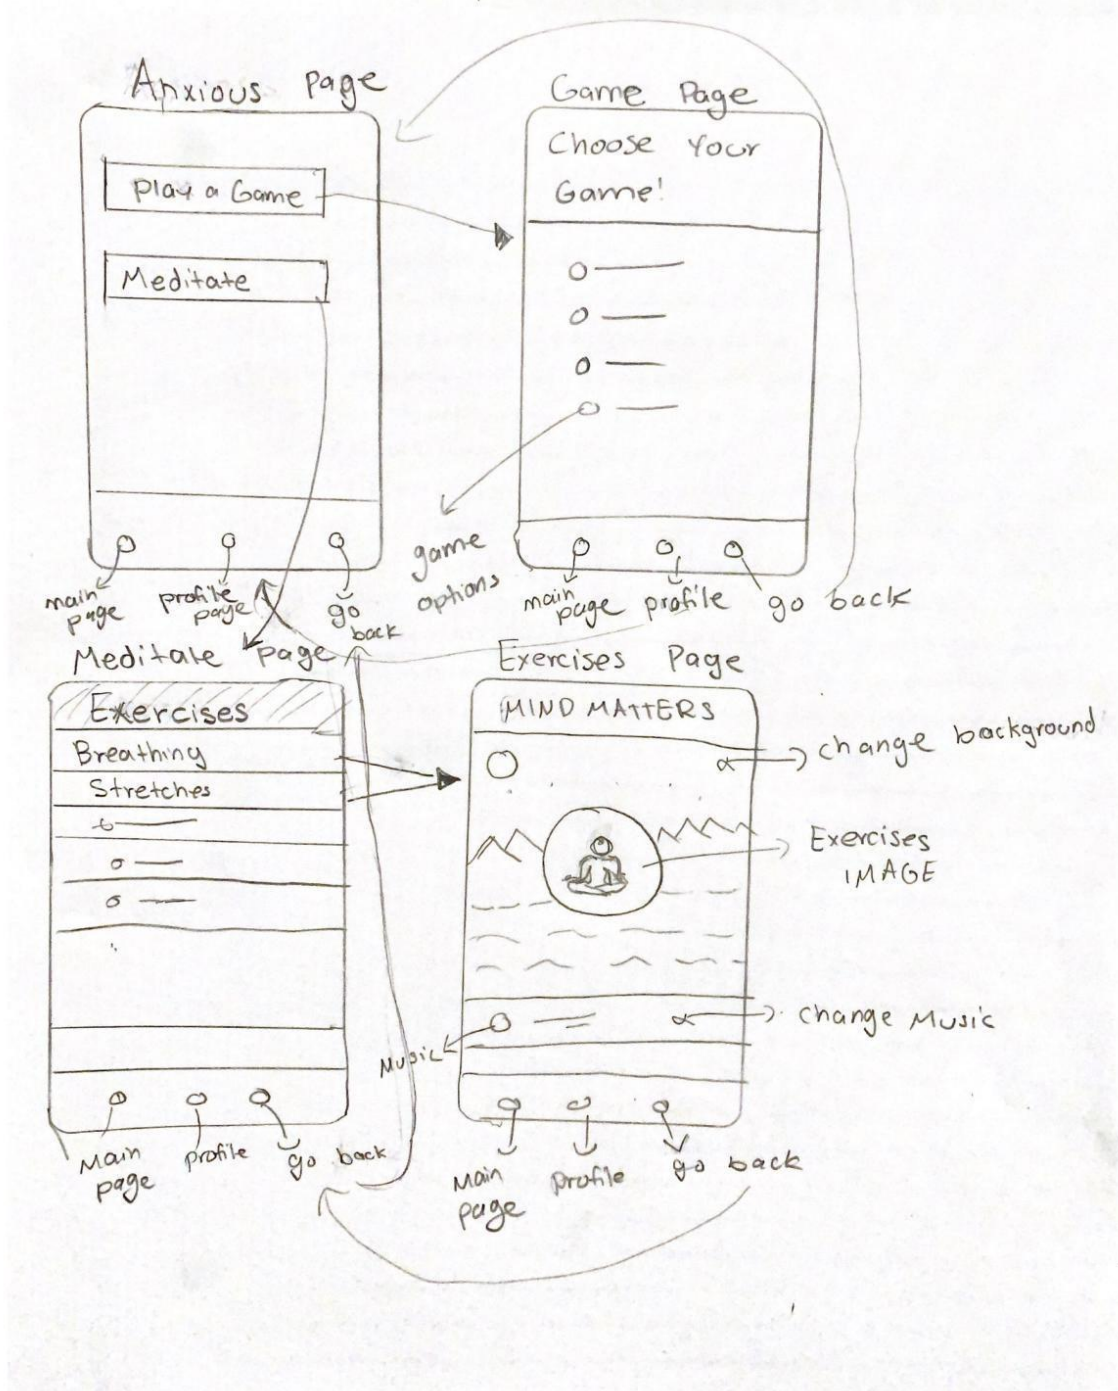 Anxious Page
Play a Game
Meditate
main
page
profile
page
go
back
Game Page
Choose Your
Game!
game
options
main
page
profile
go back
Meditate Page
Exercises
Breathing
Stretches
Main
page
profile
go back
Exercises Page
MIND MATTERS
change background
Exercises
IMAGE
Music
change Music
Main
page
profile
go back